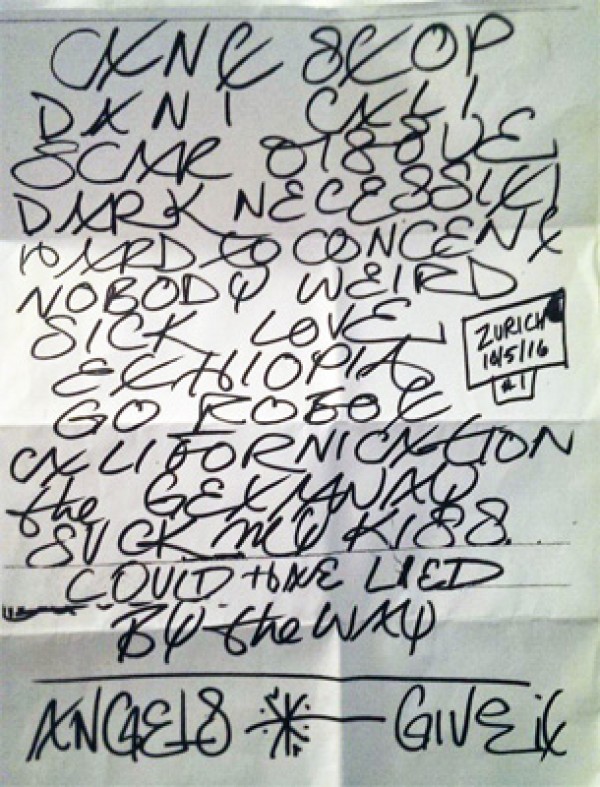 CAN'T STOP
DANI CALI
SCAR TISSUE
DARK NECESSITI
HARD TO CONCENT
NOBODY WEIRD
SICK LOVE
ZURICH
10/5/16
#1
ETHIOPIA
GO ROBOT
CALIFORNICATION
the GETAWAY
SUCK MY KISS
COULD HAVE LIED
BY the WAY
ANGELS GIVE it